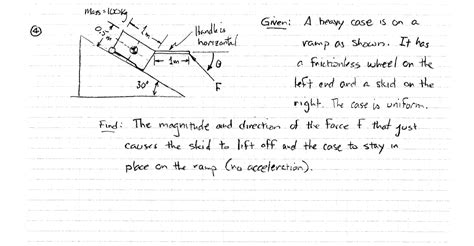 Mass = 100kg
④
0.5m
1m
Handle is
horizontal
1m
θ
F
30°
Given: A heavy case is on a
ramp as shown. It has
a frictionless wheel on the
left end and a skid on the
right. The case is uniform.
Find: The magnitude and direction of the force F that just
causes the skid to lift off and the case to stay in
place on the ramp (no acceleration).